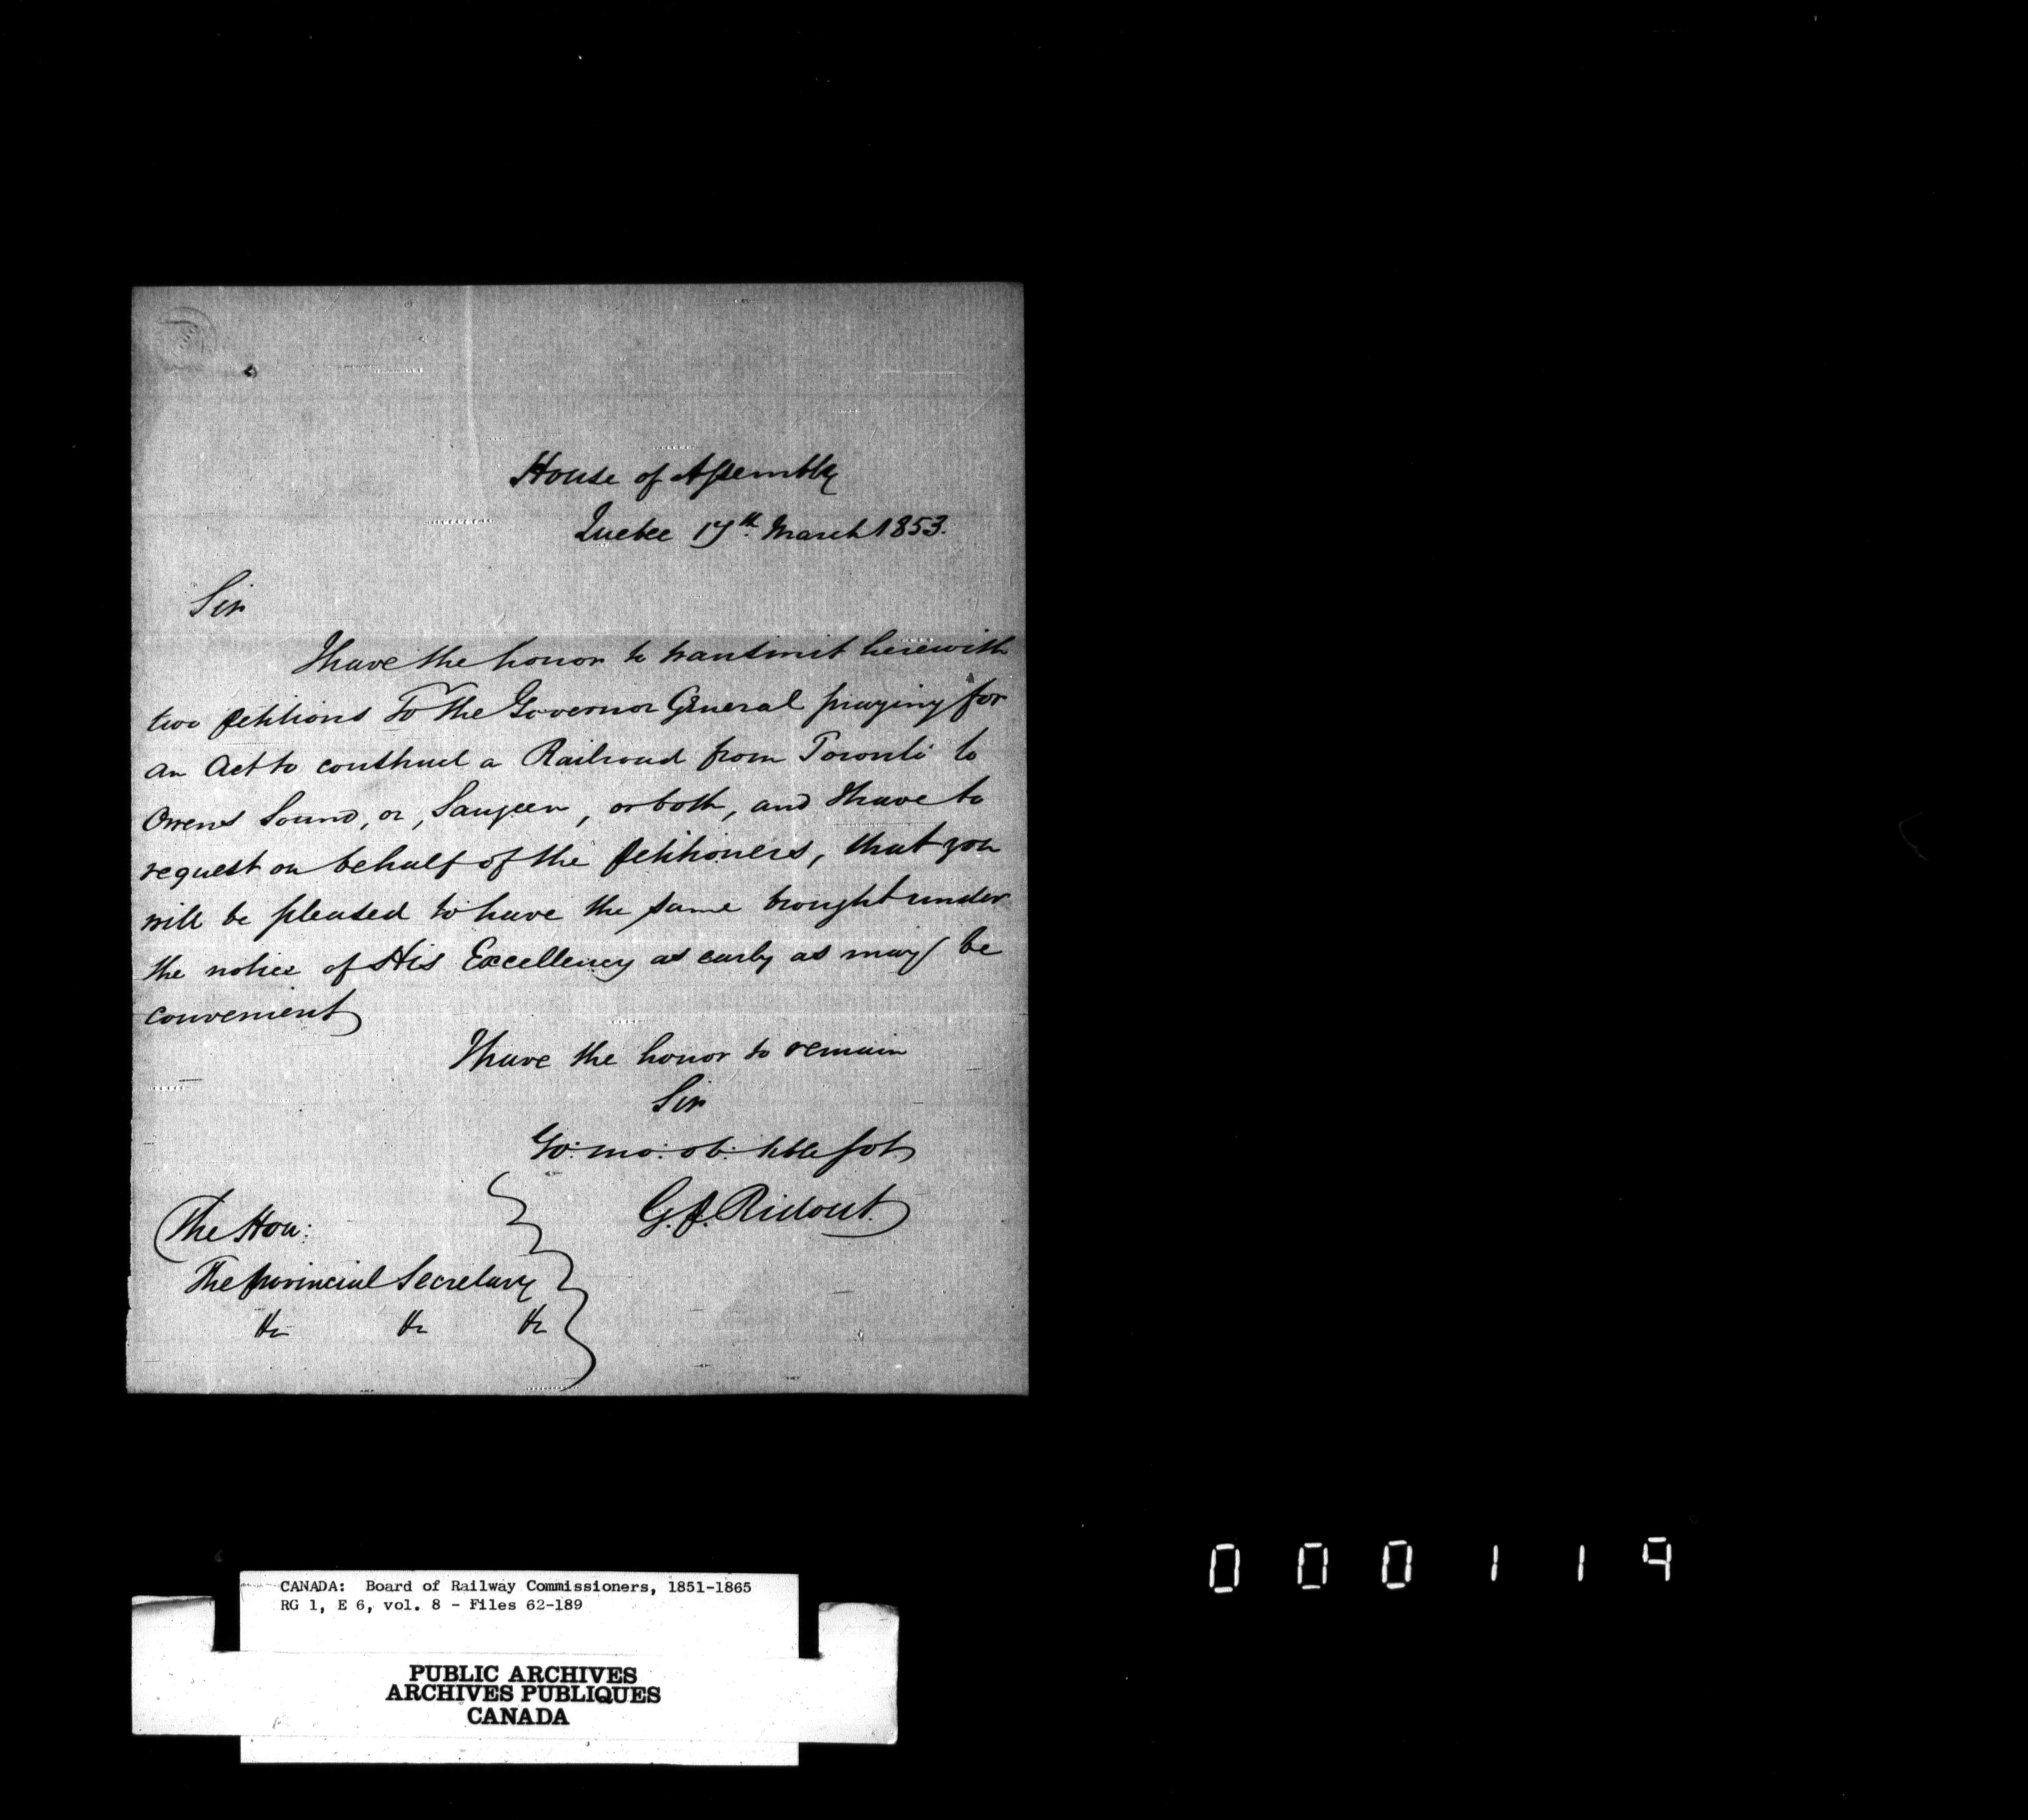 House of Assembly
Quebec 17th. March 1853.
Sir
I have the honor to transmit herewith
two petitions To the Governor General praying for
an Act to construct a Railroad from Toronto to
Owens Sound, or, Saugeen, or both, and I have to
request on behalf of the petitioners, that you
will be pleased to have the same brought under
the notice of His Excellency as early as may be
convenient
I have the honor to remain
Sir
Yo: mo: ob: hble Svt
G. P. Ridout.
The Hon:
The Provincial Secretary
&c &c &c
CANADA: Board of Railway Commissioners, 1851-1865
RG 1, E 6, vol. 8 - Files 62-189
PUBLIC ARCHIVES
ARCHIVES PUBLIQUES
CANADA
000119